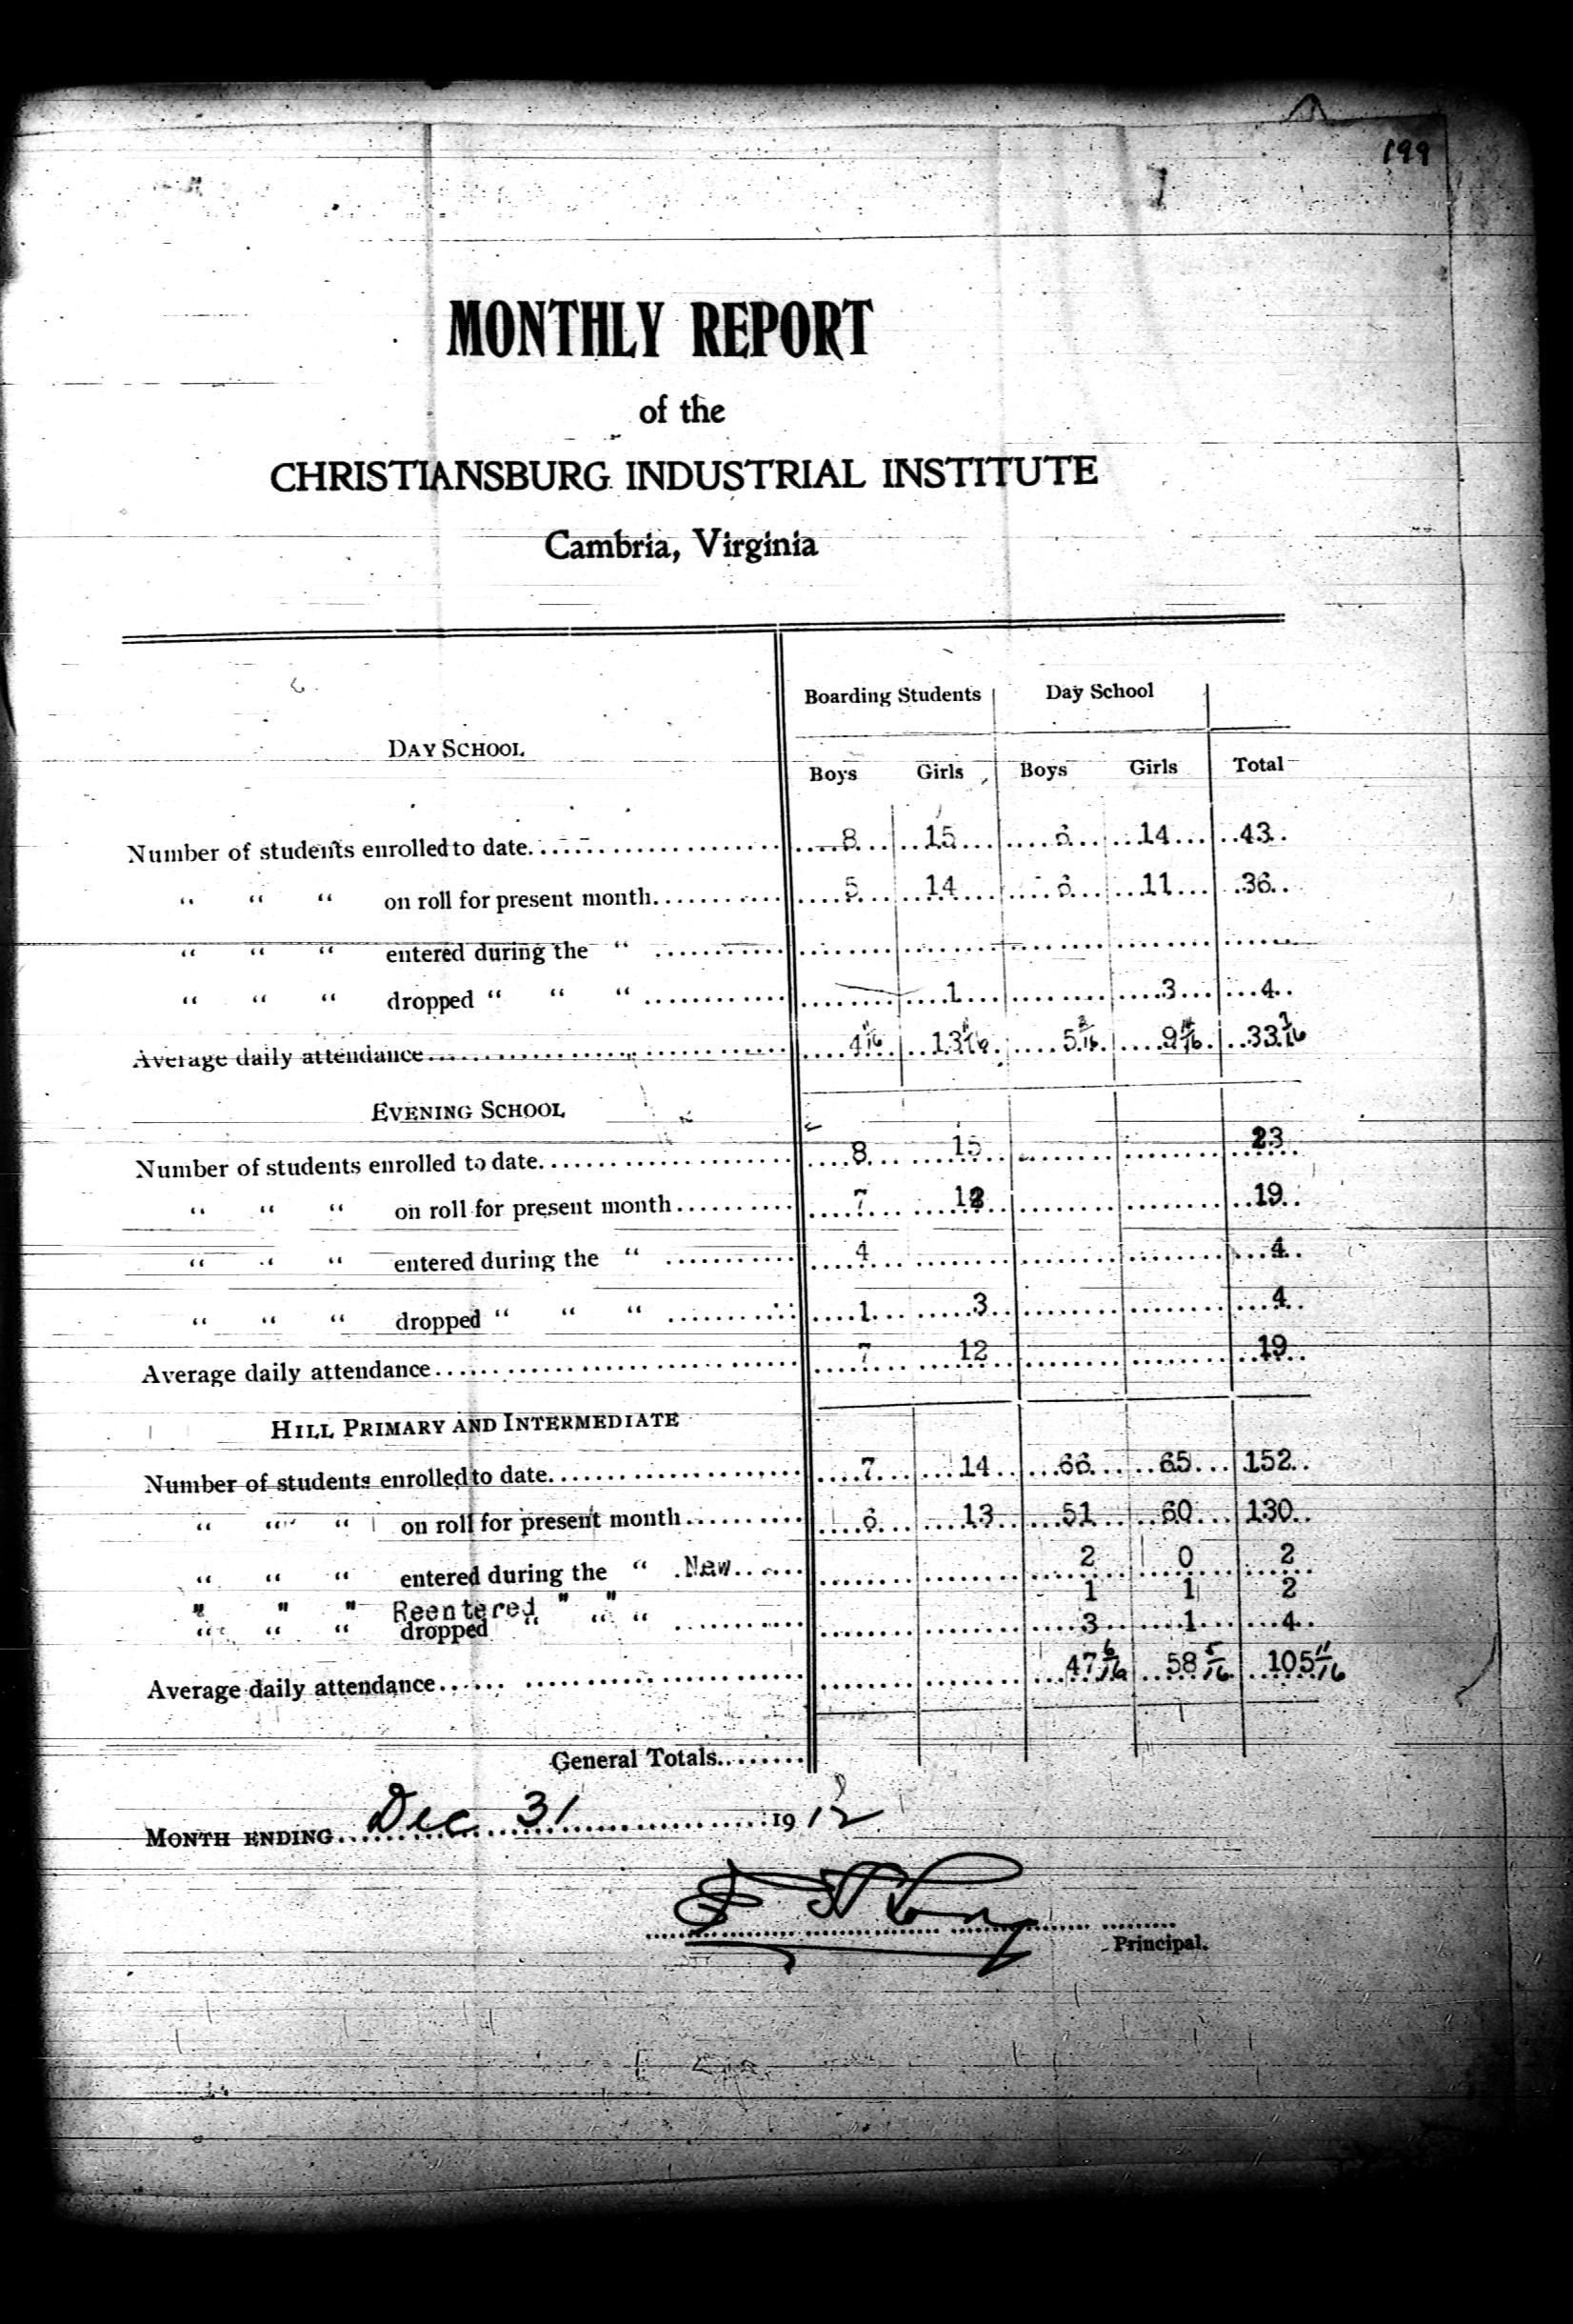 199
MONTHLY REPORT
of the
CHRISTIANSBURG INDUSTRIAL INSTITUTE
Cambria, Virginia
Boarding Students Day School
DAY SCHOOL
Boys Girls Boys Girls Total
Number of students enrolled to date 8 15 6 14 43
" " " on roll for present month 5 14 6 11 36
" " " entered during the "
" " " dropped " " " 1 3 4
Average daily attendance 4 11/16 13 5 9 33
EVENING SCHOOL
Number of students enrolled to date 8 15 23
" " " on roll for present month 7 12 19
" " " entered during the " 4 4
" " " dropped " " " 1 3 4
Average daily attendance 7 12 19
HILL PRIMARY AND INTERMEDIATE
Number of students enrolled to date 7 14 66 65 152
" " " on roll for present month 6 13 51 60 130
" " " entered during the " New 2 0 2
" " " Reentered " " 1 1 2
" " " dropped " " " 3 1 4
Average daily attendance 47 6/16 58 5/16 105 11/16
General Totals
MONTH ENDING Dec 31 1912
Principal.